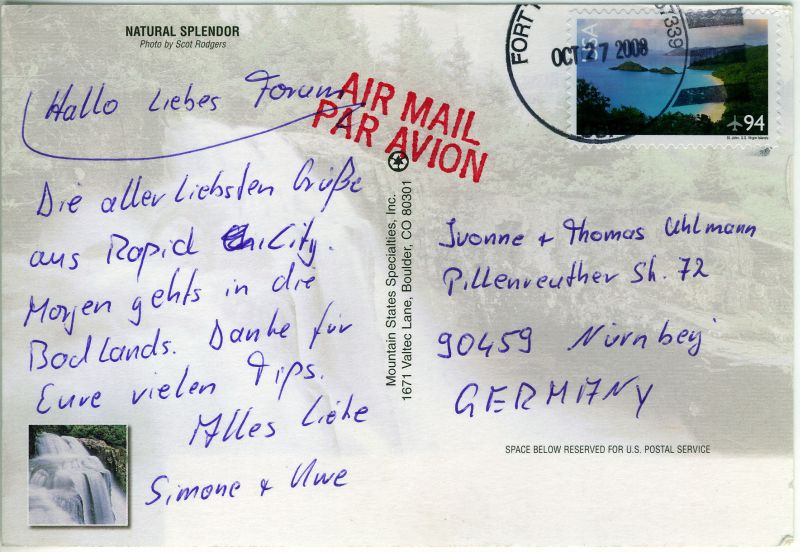 NATURAL SPLENDOR
Photo by Scot Rodgers
Hallo liebes Forum
Die aller liebsten Grüße
aus Rapid City.
Morgen gehts in die
Badlands. Danke für
Eure vielen Tips.
Alles Liebe
Simone + Uwe
AIR MAIL
PAR AVION
Mountain States Specialties, Inc.
1671 Valtec Lane, Boulder, CO 80301
FORT
OCT 27 2008
USA
94
Ivonne + Thomas Uhlmann
Pillenreuther Str. 72
90459 Nürnberg
GERMANY
SPACE BELOW RESERVED FOR U.S. POSTAL SERVICE